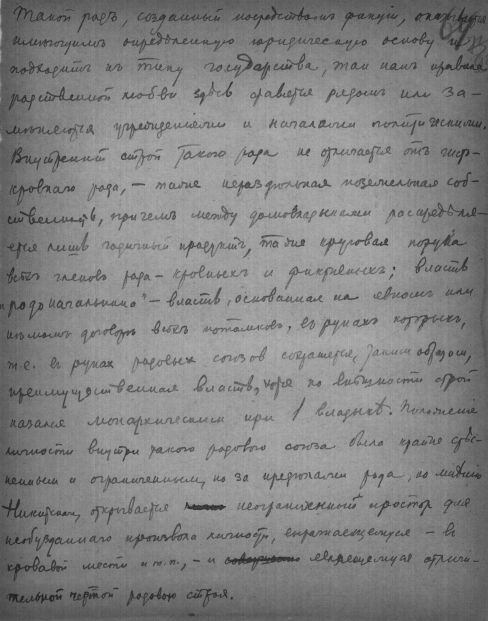 Такой родъ, созданный посредствомъ фикціи, оказывается
имѣющимъ опредѣленную юридическую основу и
подходитъ къ типу государства, такъ какъ правила
родственной любви здѣсь ставятся рядомъ или за-
мѣняются учрежденіями и началами политическими.
Внутренній строй такого рода не отличается отъ
кровнаго рода, — также нераздѣльная поземельная соб-
ственность, причемъ между домовладыками распредѣля-
ется лишь годичный продуктъ, та же круговая порука
всѣхъ членовъ рода – кровныхъ и фиктивныхъ; власть
"родоначальника" – власть, основанная на явномъ или
договорѣ всѣхъ потомковъ, въ рукахъ которыхъ,
т.е. въ рукахъ родовыхъ союзовъ сохраняется, такимъ образомъ,
преимущественная власть, хотя по внѣшности строй
казался монархическимъ при 1 владыкѣ. Положеніе
личности внутри такого родового союза было крайне стѣс-
неннымъ и ограниченнымъ, но за предѣлами рода, по мнѣнію
Никитскаго, открывается неограниченный просторъ для
необузданнаго произвола личности, выражающемуся – въ
кровавой мести и т.п., – и являющемуся отличи-
тельной чертой родового строя.